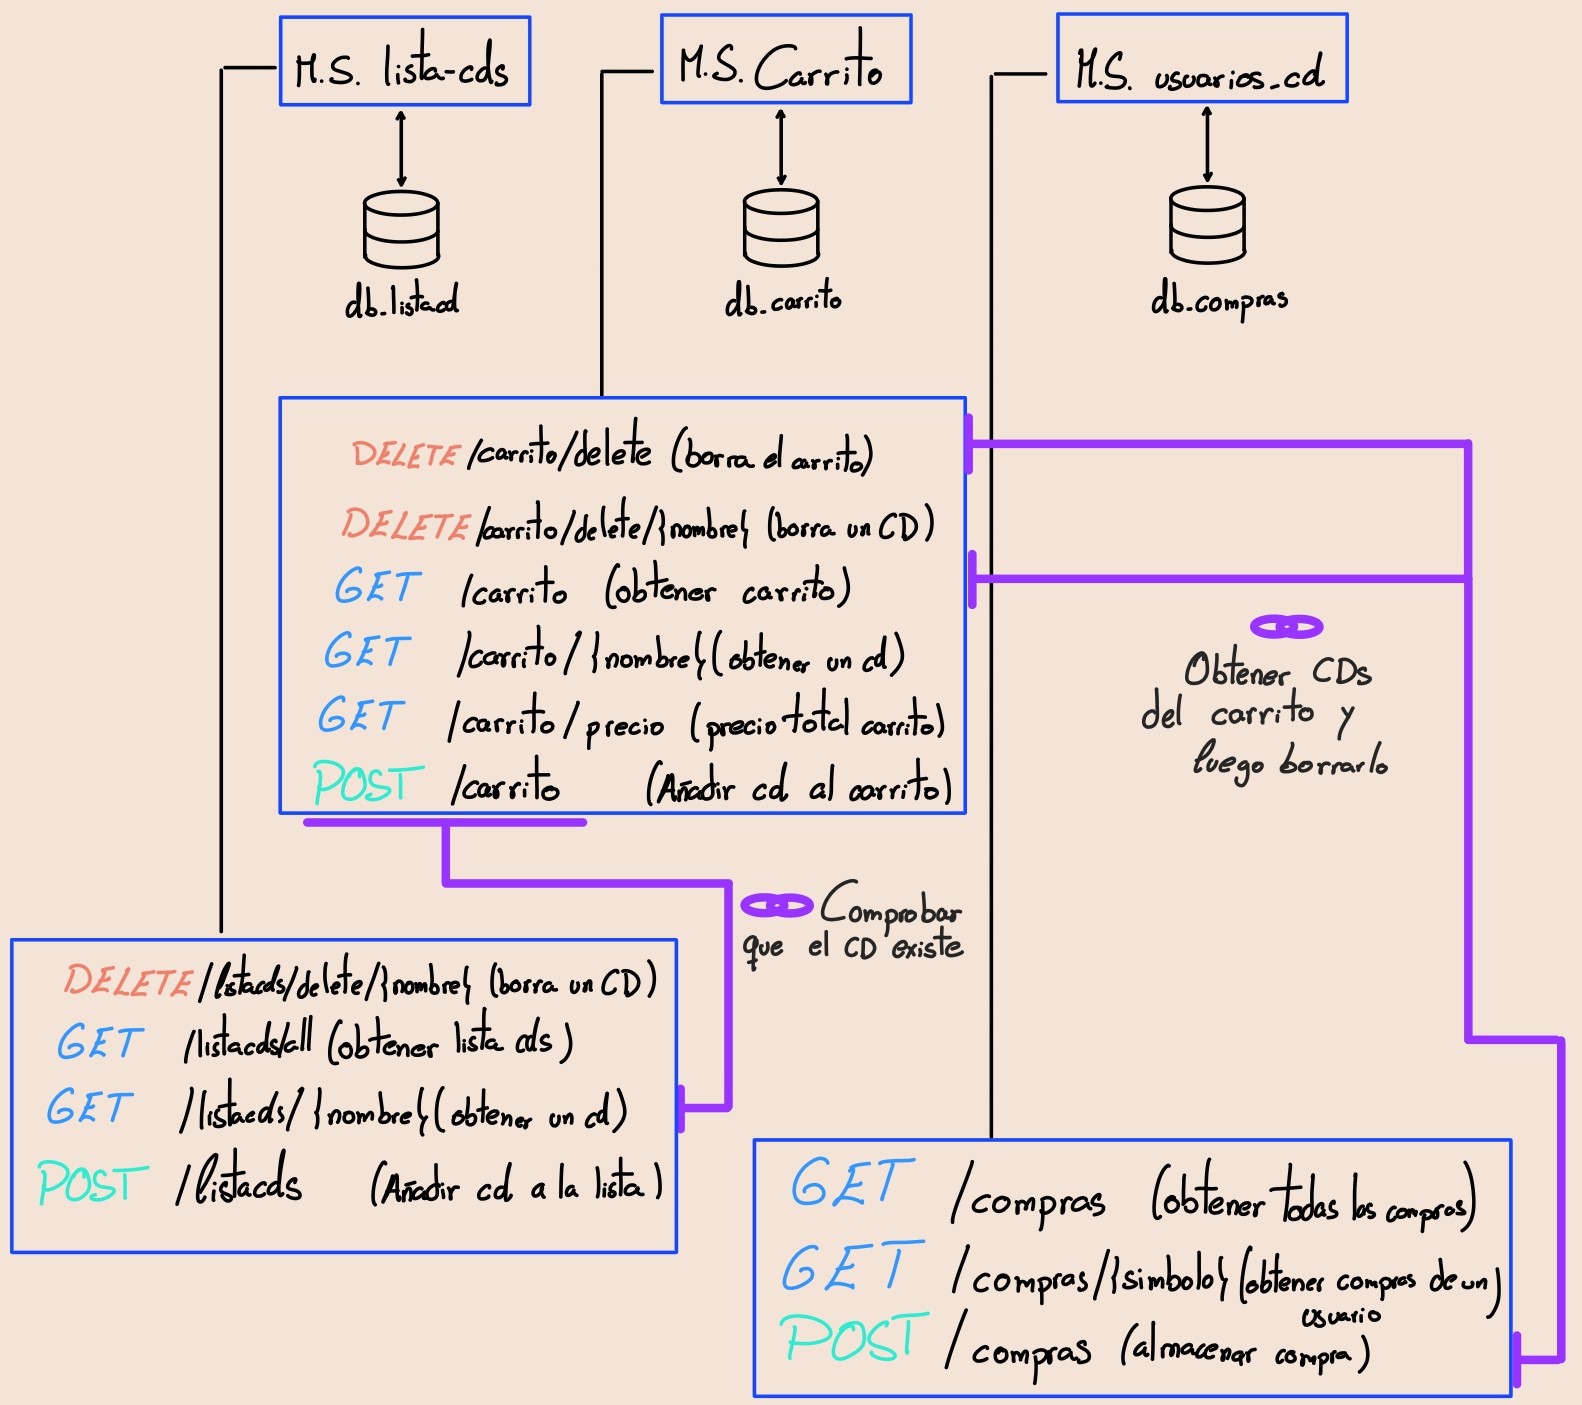 M.S. lista-cds
M.S. Carrito
M.S. usuarios_cd
db_listacd
db_carrito
db_compras
DELETE /carrito/delete (borra el carrito)
DELETE /carrito/delete/{nombre} (borra un CD)
GET /carrito (obtener carrito)
GET /carrito/{nombre} (obtener un cd)
GET /carrito/precio (precio total carrito)
POST /carrito (Añadir cd al carrito)
Obtener CDs
del carrito y
luego borrarlo
Comprobar
que el CD existe
DELETE /listacds/delete/{nombre} (borra un CD)
GET /listacds/all (obtener lista cds)
GET /listacds/{nombre} (obtener un cd)
POST /listacds (Añadir cd a la lista)
GET /compras (obtener todas las compras)
GET /compras/{simbolo} (obtener compras de un
usuario)
POST /compras (almacenar compra)